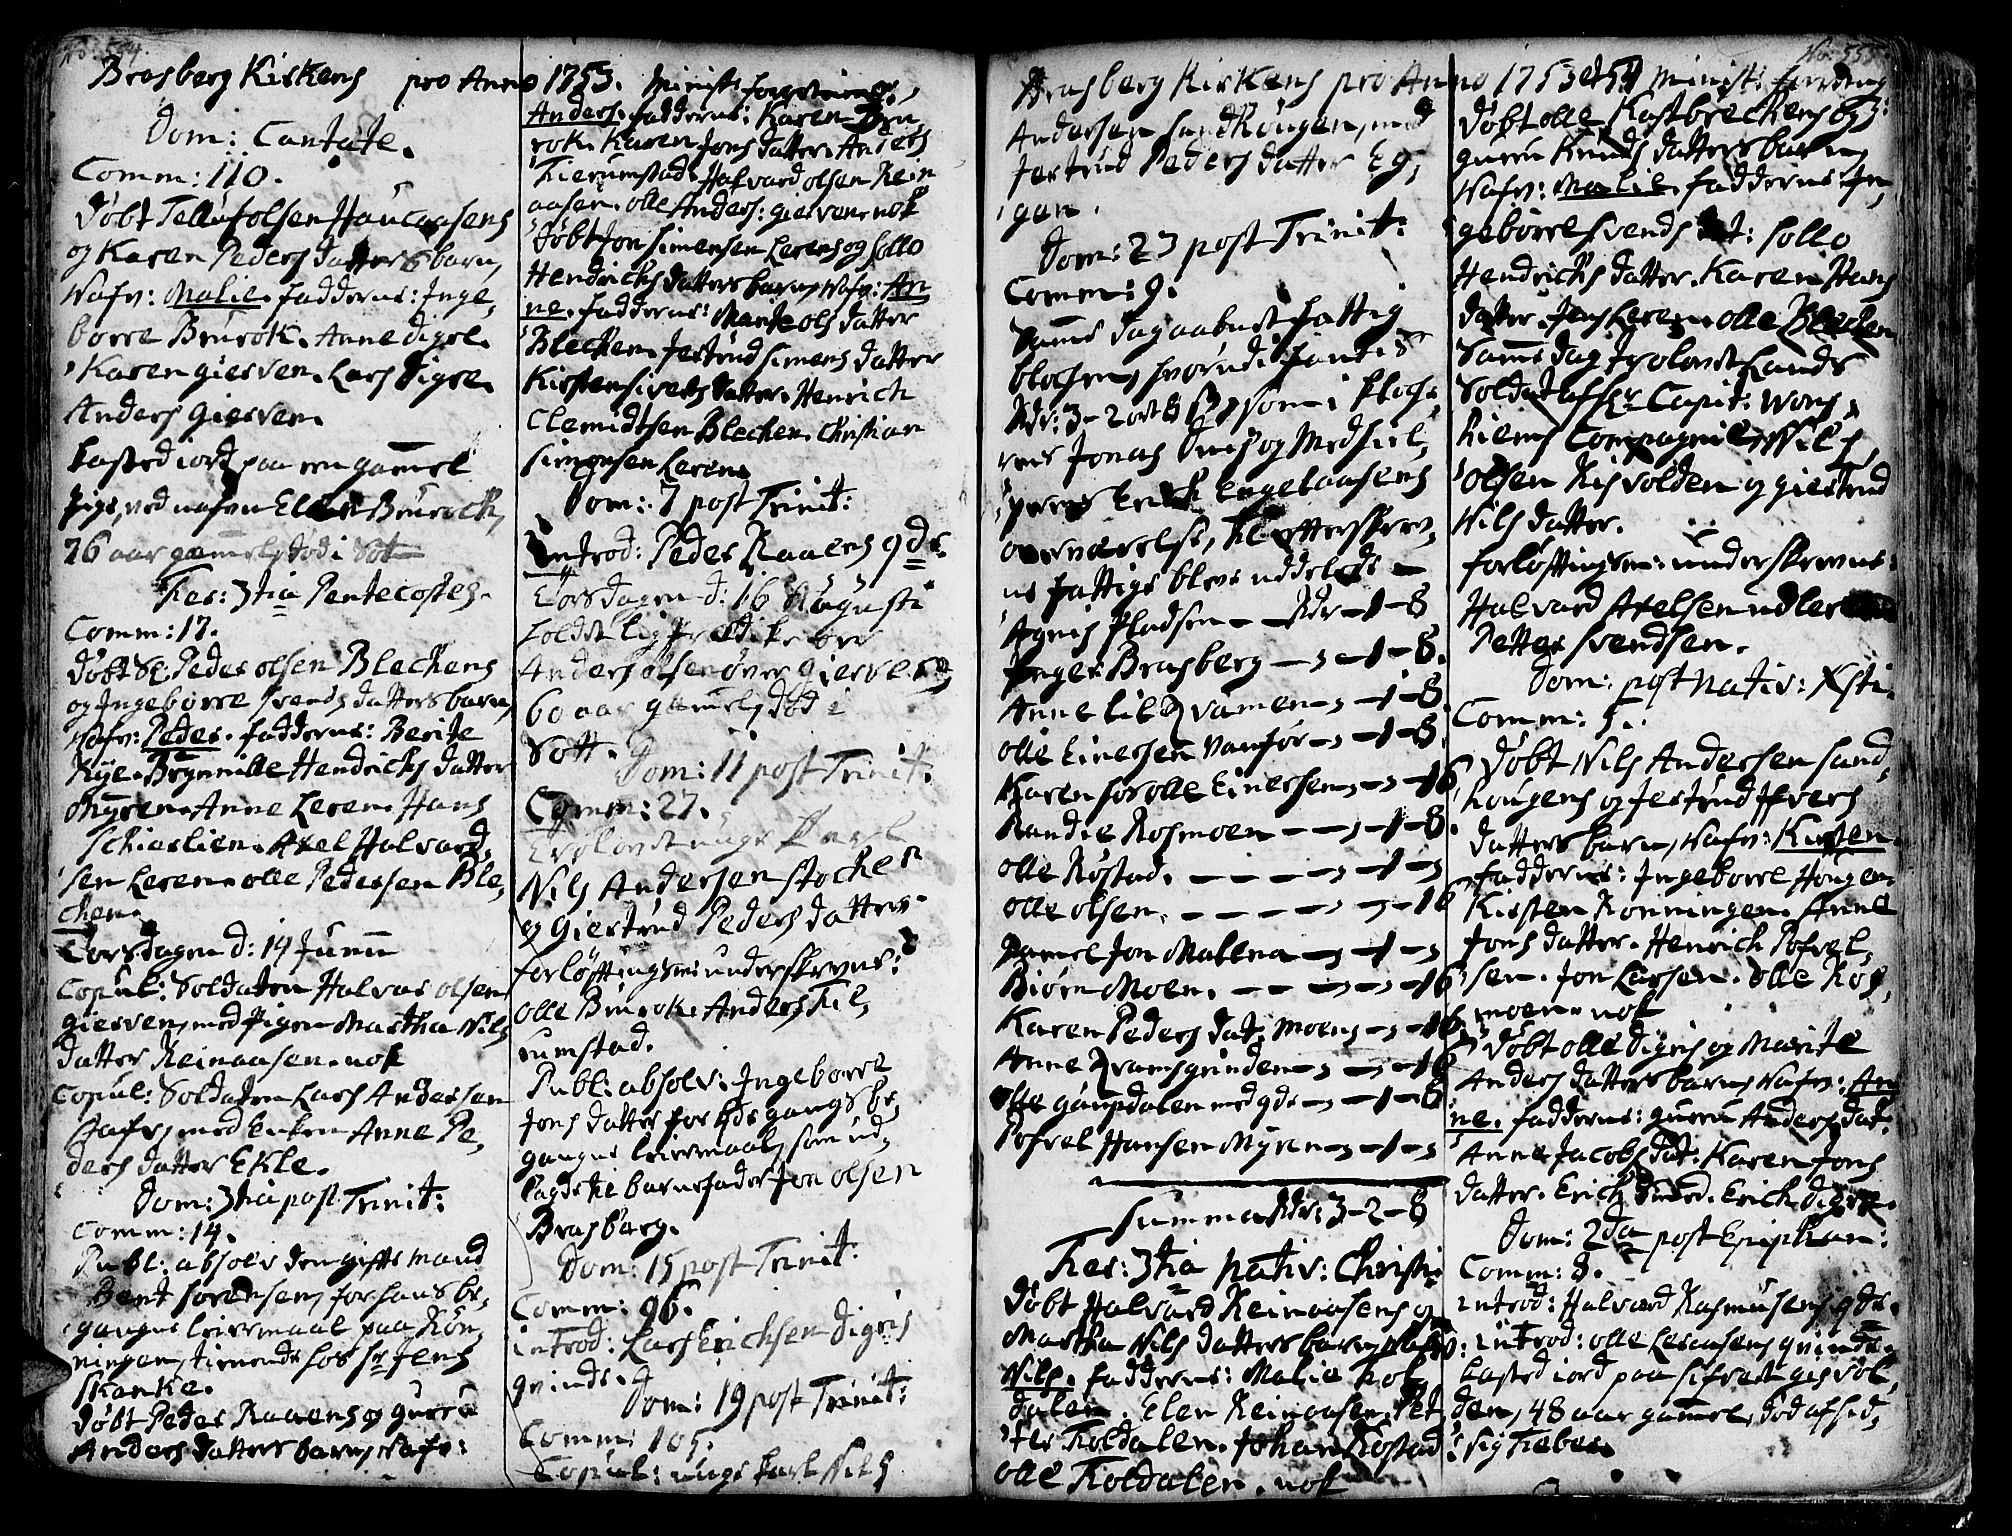 No: 554.
Brasberg Kirkens pro Anno 1753. Minist: forretning,
Dom: Cantate.
Comm: 110.
Døbt Tellufolsen Haucaasens
og Karen Peders datters barn,
Nafn: Malie. fadderne: Inge,
borre Brurok. Anne digre.
Karen giersven. Lars digre.
Anders giersven.
Casted iord paa een gammel
pige, ved nafn Elen Brurock,
76 aar gammel, død i Sot
Fer: 3tia Pentecostes.
Comm: 17.
Døbt Sr: Peder olsen Bleckens
og Ingeborre Svends datters barn,
Nafn: Peder. fadderne: Berite
Rye. Brynnille Hendrichs datter
Myren. Anne Leren. Hans
Schiarlien. Axel Halvard,
sen Leren. olle Pedersen Ble,
chen.
Torsdagen d: 14 Junii
Copul: Soldaten Halvar olsen
giersven, med Pigen Martha Nils
datter Reinaasen. nok
Copul: Soldaten Lars Andersen
med Enken Anne Pe,
ders datter Ekle.
Dom: 3tia post Trinit:
Comm: 14.
Publ: absolv den gifte Mand
Bent Sorensen, for hans be,
gangne leiermaal paa Røn,
ningen, tienende hos Sr Jens
Skanke.
Døbt Peder Raaens og guru
Anders datters barn, Nafn:
Anders. fadderne: Karen Bru
rok. Karen Jons datter. Anders
Tierumstad. Halvard olsen Rein
aasen. olle Anders: giersven. nok
Døbt Jon Simensen Lerens og Sollo
Hendrichs datters barn, Nafn: An
ne. fadderne: Marte ols datter
Blecken. Jertrud Simens datter
Kirsten Siverts datter. Henrich
Clemidtsen Blecken. Christian
Simonsen Leren.
Dom: 7 post Trinit:
Introd: Peder Raaens qds.
Torsdagen d: 16 Augusti
holdt Lig Prædiken over
Anders olsen øver giersven,
60 aar gammel, død i
Sott.
Dom: 11 post Trinit:
Comm: 27.
Trolovet unge Karl
Nils Andersen Stocken
og Giertrud Peders datter.
forløftingsmend underskrevne:
Olle Brurok. Anders Tie,
rumstad.
Publ: absolv: Ingeborre
Jons datter for gangs be,
gangne leiermaal, som ud,
lagde til barnefader Jon olsen
Brasberg.
Dom: 15 post Trinit
Comm: 96.
introd: Lars Erichsen digris
qvinde.
Dom: 19 post Trinit:
Comm: 105.
Copul: unge Karl Nils
No: 555
Brasberg Kirkens pro Anno 1753 et 54 Minist: forretning
Andersen Sandhougen, med
Jertrud Peders datter Eg,
gen.
Dom: 23 post Trinit:
Comm: 9.
Samme dag aabnet fattig
blochen, hvorudi fandis
Rdr: 3-2 ort 8 s, som i Klock
rens Jonas og Medhiel,
peren Erich Engelaasens
overværelse, til efterskrev,
ne fattige blev uddelede —
Agnis Pladsen — Rdr — 1 - 8
Inger Brasberg — „ — 1 - 8.
Anne Lille Qvamen — „ — 1 - 8
Olle Einersen Vanfør — „ — 1 - 8.
Karen for olle Einersen — „ — „ 16
Randie Rosmoen — — „ — 1 - 8.
olle Røstad. — — — „ — 1 — „
olle olsen. — — — — „ — „ — 16
Gamel Jon Mallena — „ — 1 — „
Biørn Moen. — — — „ — „ — 16
Karen Peders dat: Moen — „ — „ 16
Anne Qvamsgrinden — „ — „ 16
olle gaupdalen med qds — „ — 1 - 8
Pofvel Hansen Myren — „ — 1 — „
Summa Rdr: 3-2-8
Fer: 3tia Nativ: Christi
Døbt Halvard Reinaasens og
Martha Nils datters barn, Nafn:
Nils. fadderne: Malie Kol
dalen. Elen Reinaasen. Pet
ter Koldalen. Johan Rostad
olle Koldalen. nok
Døbt olle Kastbreckens og
guru Knuds datters barn,
Nafn: Malie. fadderne: In,
geborre Svends dat: Sollo
Hendrichs datter. Karen Hans
datter. Jens Leren. olle Blecken
Samme dag Trolovet Lands
Soldat af Hr Capit: Wors,
Riems Compagnie, Nils
olsen Risvolden og giertrud
Nils datter.
forløftingsm: underskrevne:
Halvard Axelsen udleren
Petter Svendsen.
Dom: post nativ: Xsti.
Comm: 5.
Døbt Nils Andersen Sand,
hougens og Jertrud Ifvers
datters barn, Nafn: Kirsten.
fadderne: Ingeborre Hougen.
Kirsten Ronningen. Anne
Jons datter. Henrich Pofvel,
sen. Jon Larsen. olle Ros,
moen. nok
Døbt olle digris og Marite
Anders datters barn, Nafn: An
ne. fadderne: guru Anders dat.
Anne Jacobs dat: Karen Jons
datter. Erich Erich digre.
Dom: 2da post Epiphan:
Comm: 8.
introd: Halvard Rasmusens qds.
introd: olle Leraasens qvinde.
Casted iord paa Sifvert gisvol,
den, 48 aar gammel, død af hid,
sig Feber.